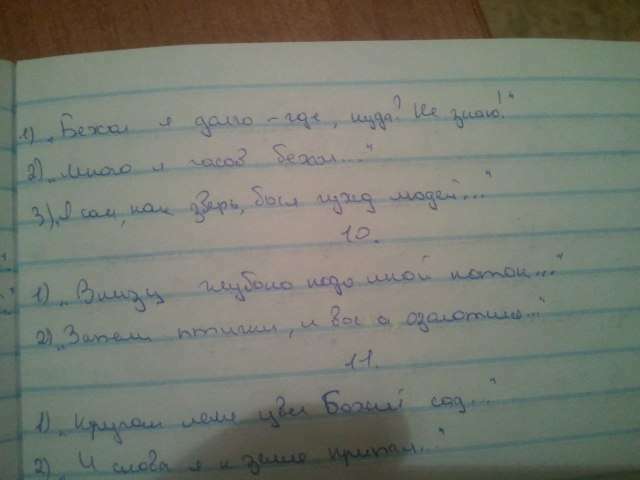 1) „Бежал я долго - где, куда? Не знаю!"
2) „Много я часов бежал..."
3) „Я сам, как зверь, был чужд людей..."
10.
1) „Внизу глубоко подо мной поток..."
2) „Запели птички, и вос а озолотила..."
11.
1) „Кругом меня цвел Божий сад..."
2) „И снова я к земле припал..."